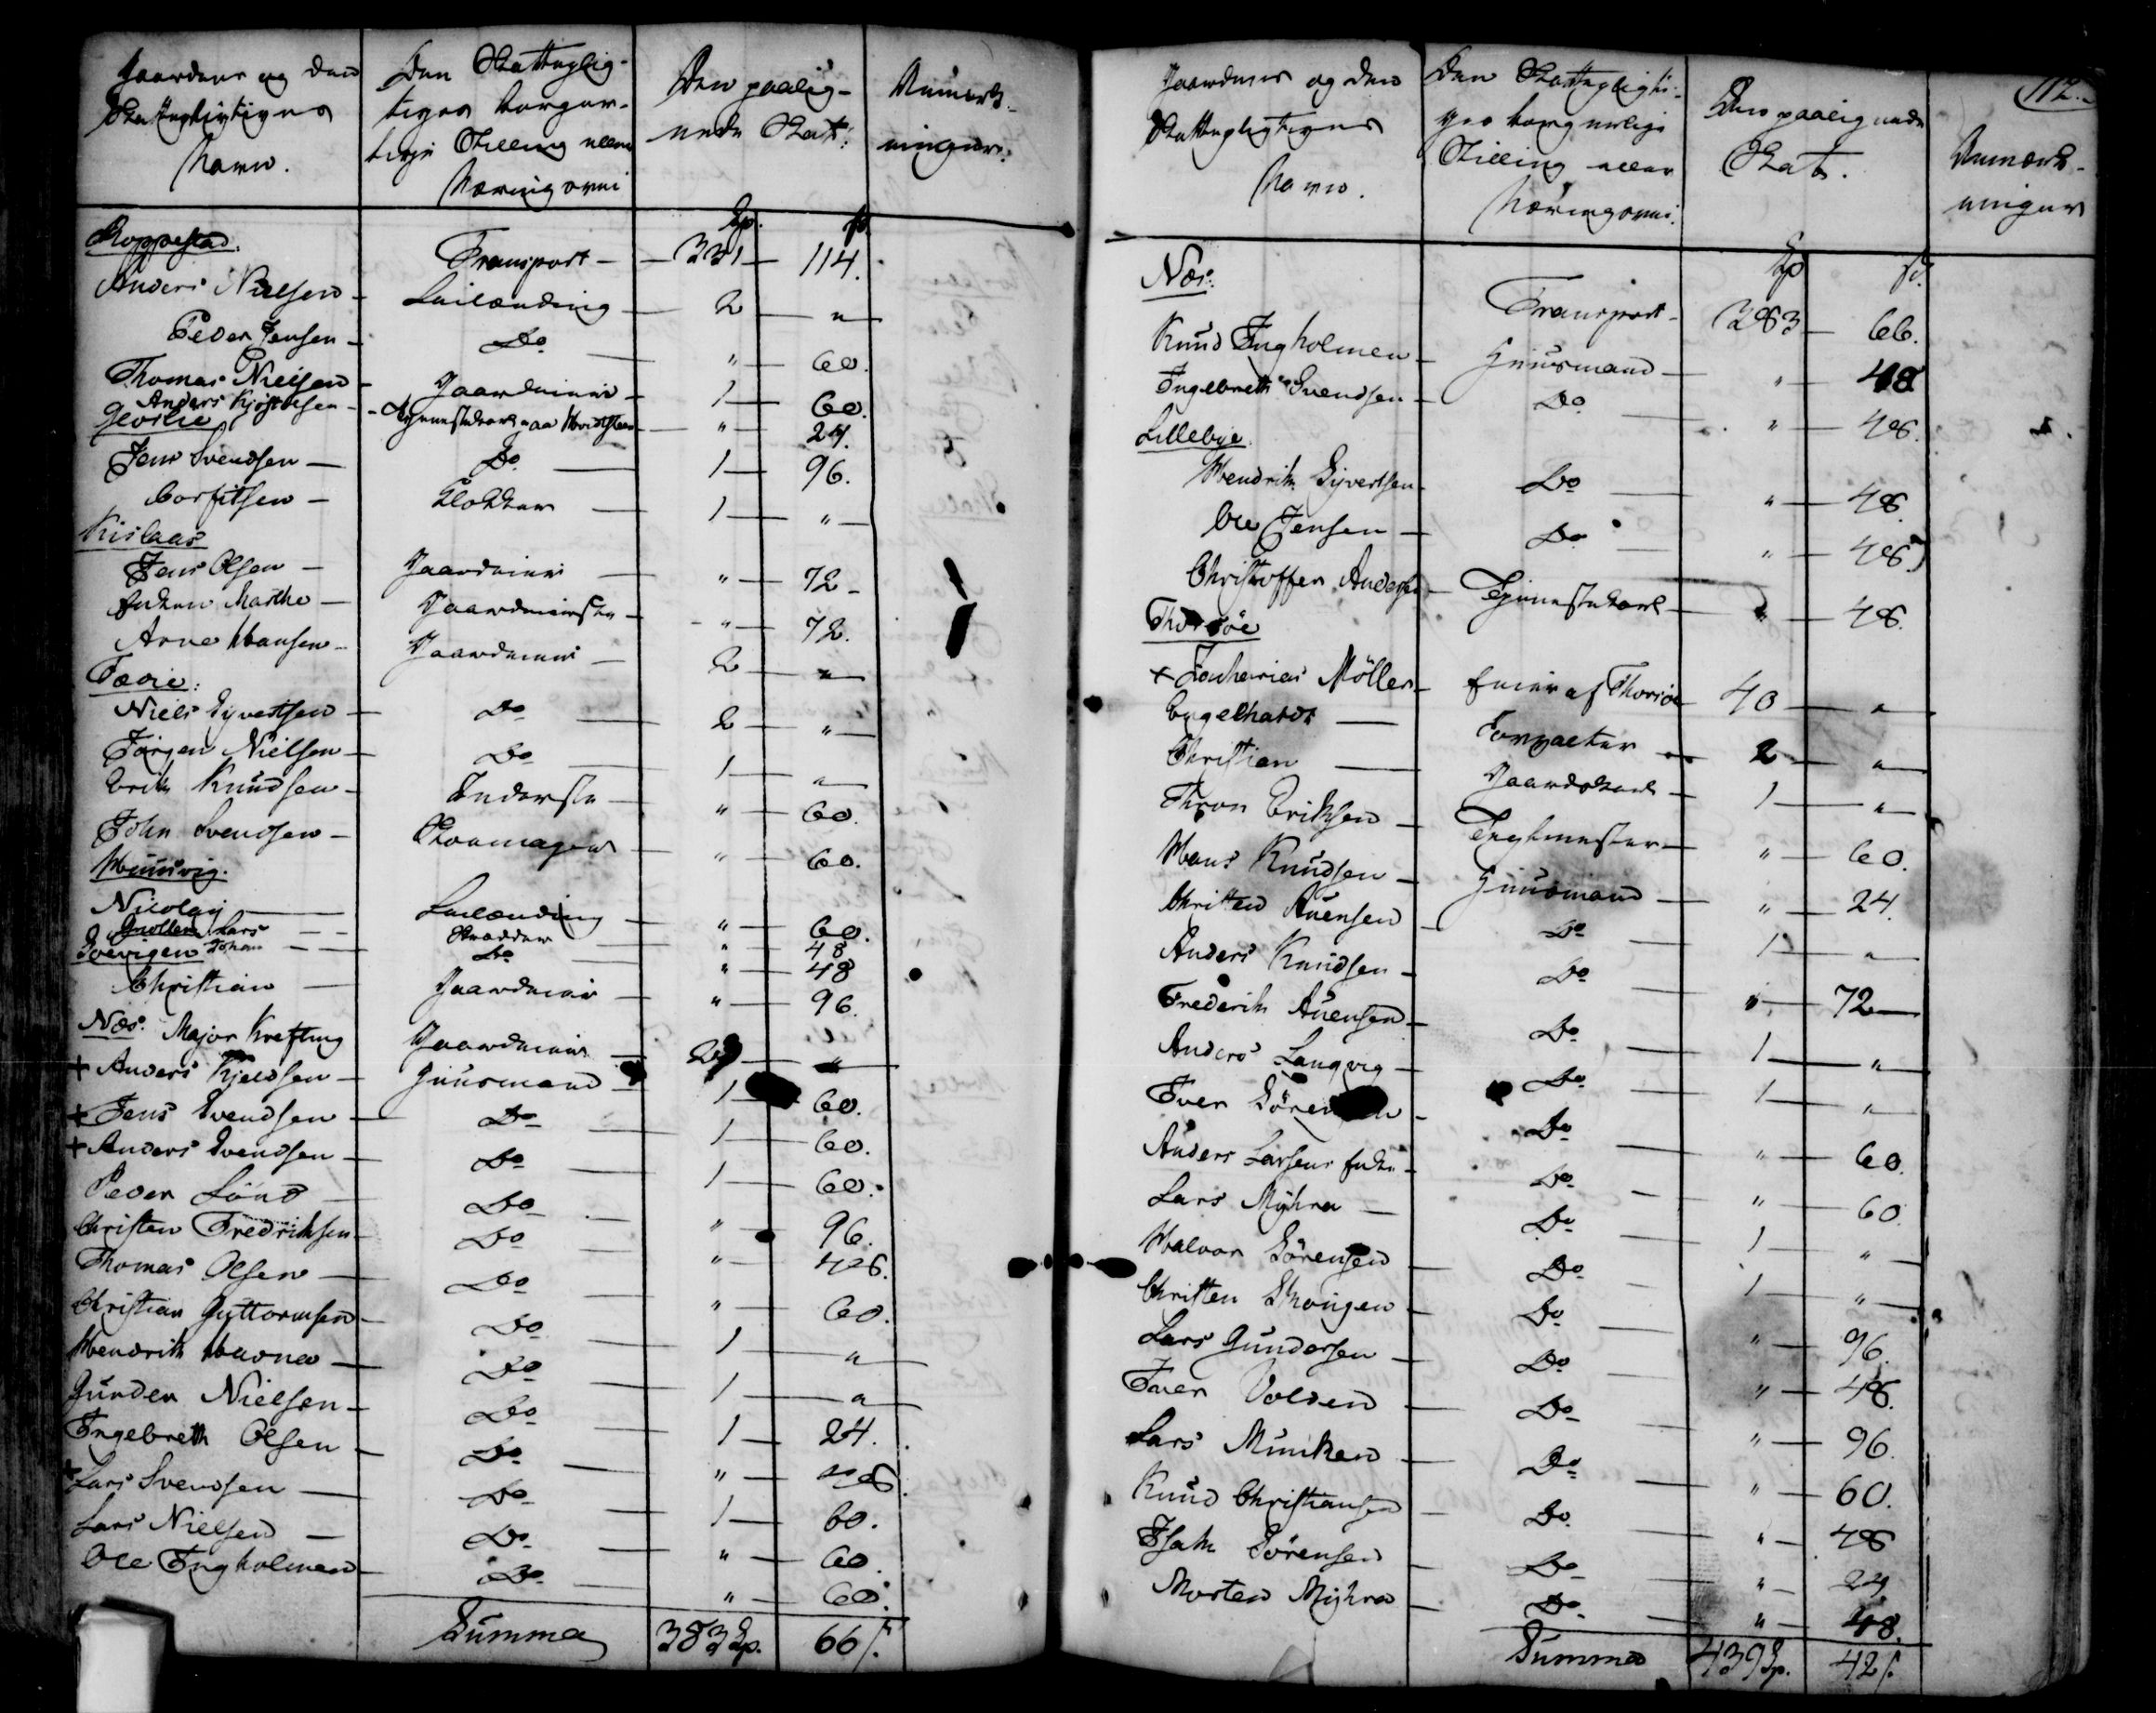 Gaardenes og den
Skattepligtiges
Navn.
Den Skattepligtiges borgerlige Stilling eller Næringsvei
Den paalignede Skat:
Anmærkninger.
Sp. ß
Roppestad.
Transport — 331 — 114.
Anders Nielsen — Leilænding — 2 — "
Peder Jensen — Do — " — 60.
Thomas Nielsen — Gaardeier — 1 — 60.
Anders — Tjenestekarl paa — " — 24.
Jens Svendsen — Do — 1 — 96.
Corfitsen — Klokker — 1 — "
Kislaas
Jens Olsen — Gaardeier — " — 72 -
Enken Marthe — Gaardeierske — " — 72.
Arne Hansen — Gaardeier — 2 — "
Fæøie:
Niels Syvertsen — Do — 2 — "
Jørgen Nielsen — Do — 1 — "
Erik Knudsen — Inderste — " — 60.
John Svendsen — Skoemager — " — 60.
Huusvig.
Nicolay — Leilænding — " — 60.
Lars — Skrædder — " — 48
Johan — Do — " — 48
Christian — Gaardeier — " — 96.
Næs: Major Krefting Gaardeier — "
+ Anders Kjeldsen — Huusmand — 1 — 60.
+ Jens Svendsen — Do — 1 — 60.
+ Anders Svendsen — Do — 1 — 60.
Peder Lønd — Do — " — 96.
Christen Fredriksen — Do — " — 48.
Thomas Olsen — Do — " — 60.
Christian Guttormsen — Do — 1 — "
Hendrik Havna — Do — 1 — "
Gunder Nielsen — Do — 1 — 24.
Ingebreth Olsen — Do — " — 48.
+ Lars Svendsen — Do — 1 — 60.
Lars Nielsen — Do — " — 60.
Ole Ingholmen — Do — " — 60.
Summa 383 Sp. 66 ß.
112.
Gaardenes og den
Skattepligtiges
Navn.
Den Skattepligtiges borgerlige Stilling eller Næringsvei.
Den paalignede Skat.
Anmærkninger
Sp ß.
Næs:
Transport — 383 — 66.
Knud Ingholmen — Huusmand — " — 48
Ingebreth Svendsen — Do — " — 48.
Lillebye.
Hendrik Syvertsen — Do — " — 48.
Ole Jensen — Do — " — 48
Christoffer Andersen — Tjenestekarl — " — 48.
Thorsøe
+ Zacharias Møller — Eier af Thorsøe 40 — "
Engelhardt — Forvalter — 2 — "
Christian — Gaardskarl — 1 — "
Thron Eriksen — Teglmester — " — 60.
Hans Knudsen — Huusmand — " — 24.
Christen Auensen — Do — 1 — "
Anders Knudsen — Do — " — 72 —
Frederik Auensen — Do — 1 — "
Anders Langvig — Do — 1 — "
Iver Sørensen — Do — " — 60.
Anders Larsens Enke — Do — " — 60.
Lars Myhra — Do — 1 — "
Halvor Sørensen — Do — 1 — "
Christen Skougen — Do — " — 96.
Lars Gundersen — Do — " — 48.
Iver Volden — Do — " — 96.
Lars Munken — Do — " — 60.
Knud Christiansen — Do — " — 48
Isak Sørensen — Do — " — 24
Morten Myhra — Do — " — 48.
Summa 439 Sp. 42 ß.